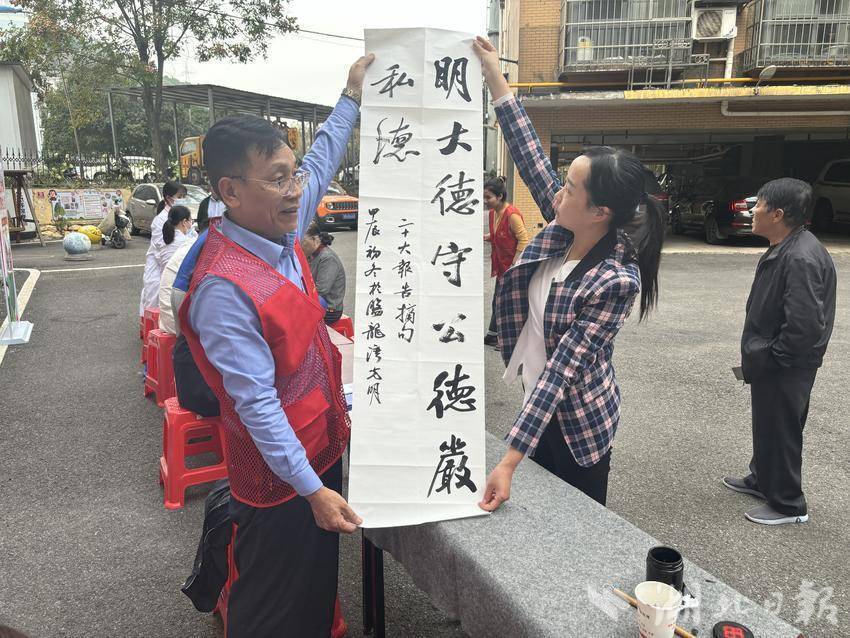 明大德守公德嚴
私德
二十大報告摘句
甲辰初冬於臨龍灣尤明
湖北日报